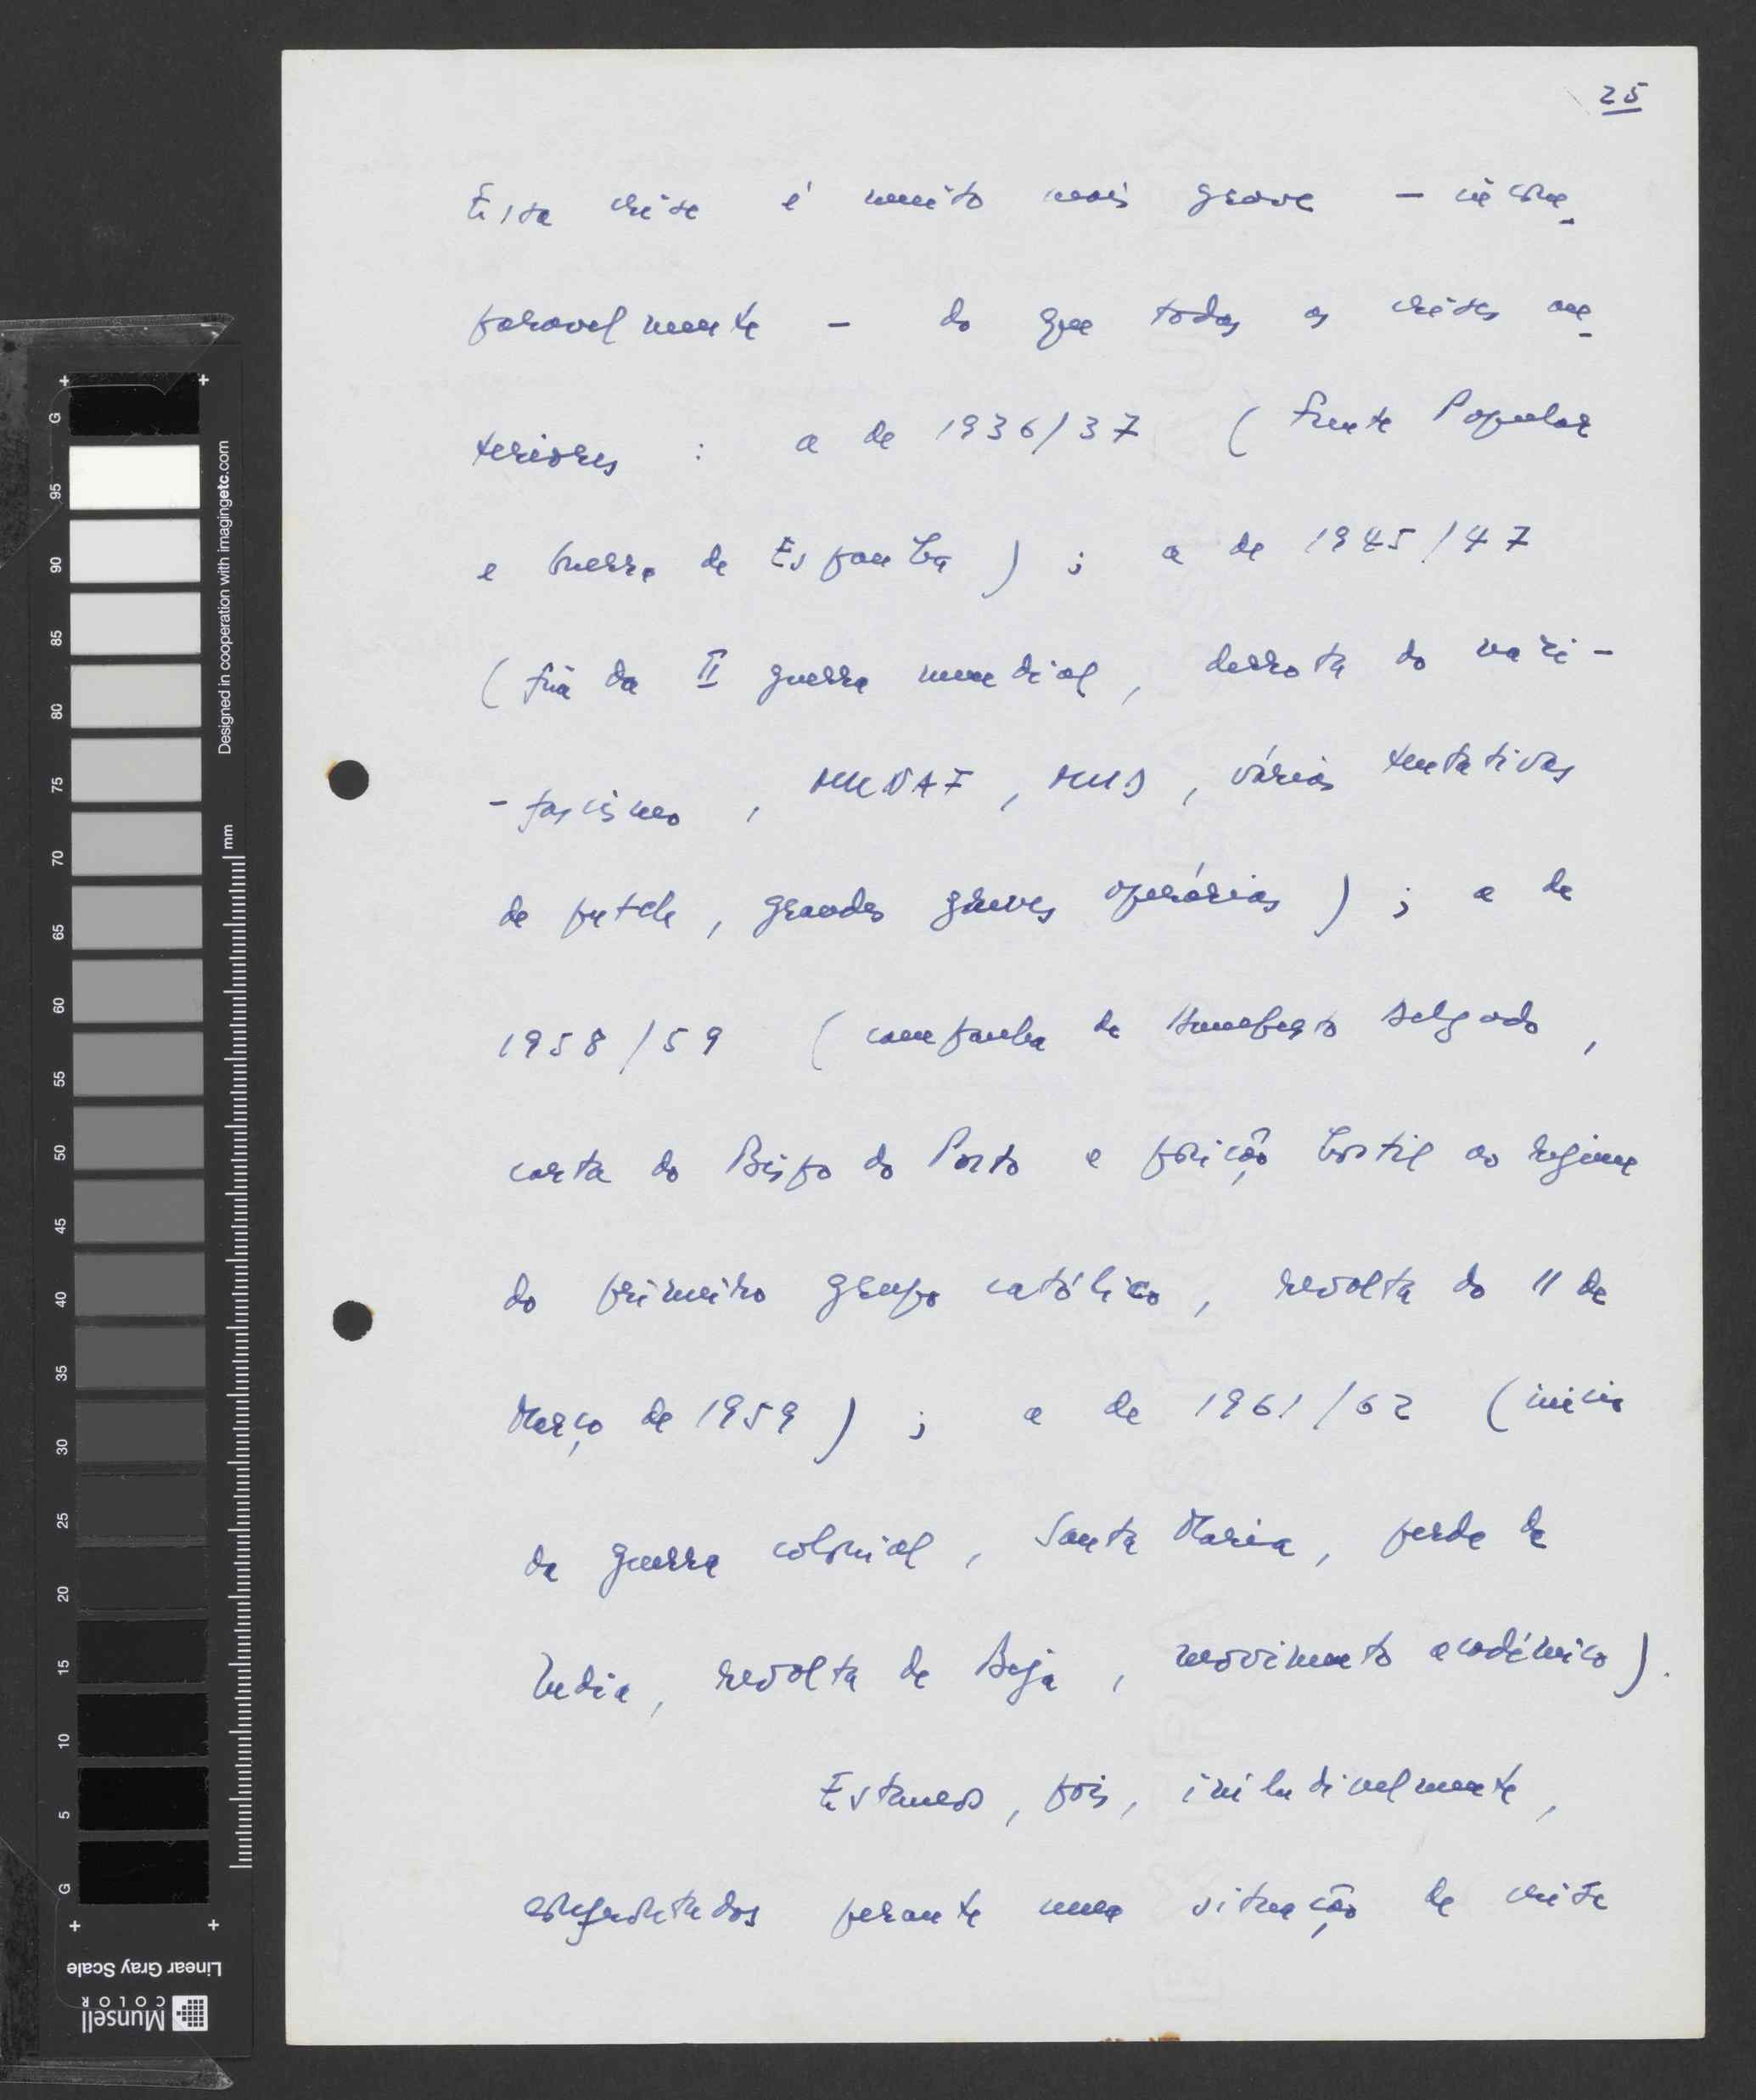 25
Essa crise é muito mais grave – incom-
paravelmente – do que todas as crises an-
teriores : a de 1936/37 ( Frente Popular
e Guerra de Espanha ) ; a de 1945/47
( fim da II guerra mundial , derrota do nazi-
- fascismo , MUNAF , MUD , várias tentativas
de putch , grandes greves operárias ) ; a de
1958/59 ( campanha de Humberto Delgado ,
carta do Bispo do Porto e posição hostil ao regime
do primeiro grupo católico , revolta do 11 de
Março de 1959 ) ; a de 1961/62 ( início
da guerra colonial , Santa Maria , perda da
India , revolta de Beja , movimento académico ) .
Estamos , pois , iniludivelmente ,
confrontados perante uma situação de crise
G
95
90
85
80
75
70
65
60
55
50
45
40
35
30
25
20
15
10
5
G
mm
Designed in cooperation with imagingetc.com
Linear Gray Scale
Munsell
COLOR